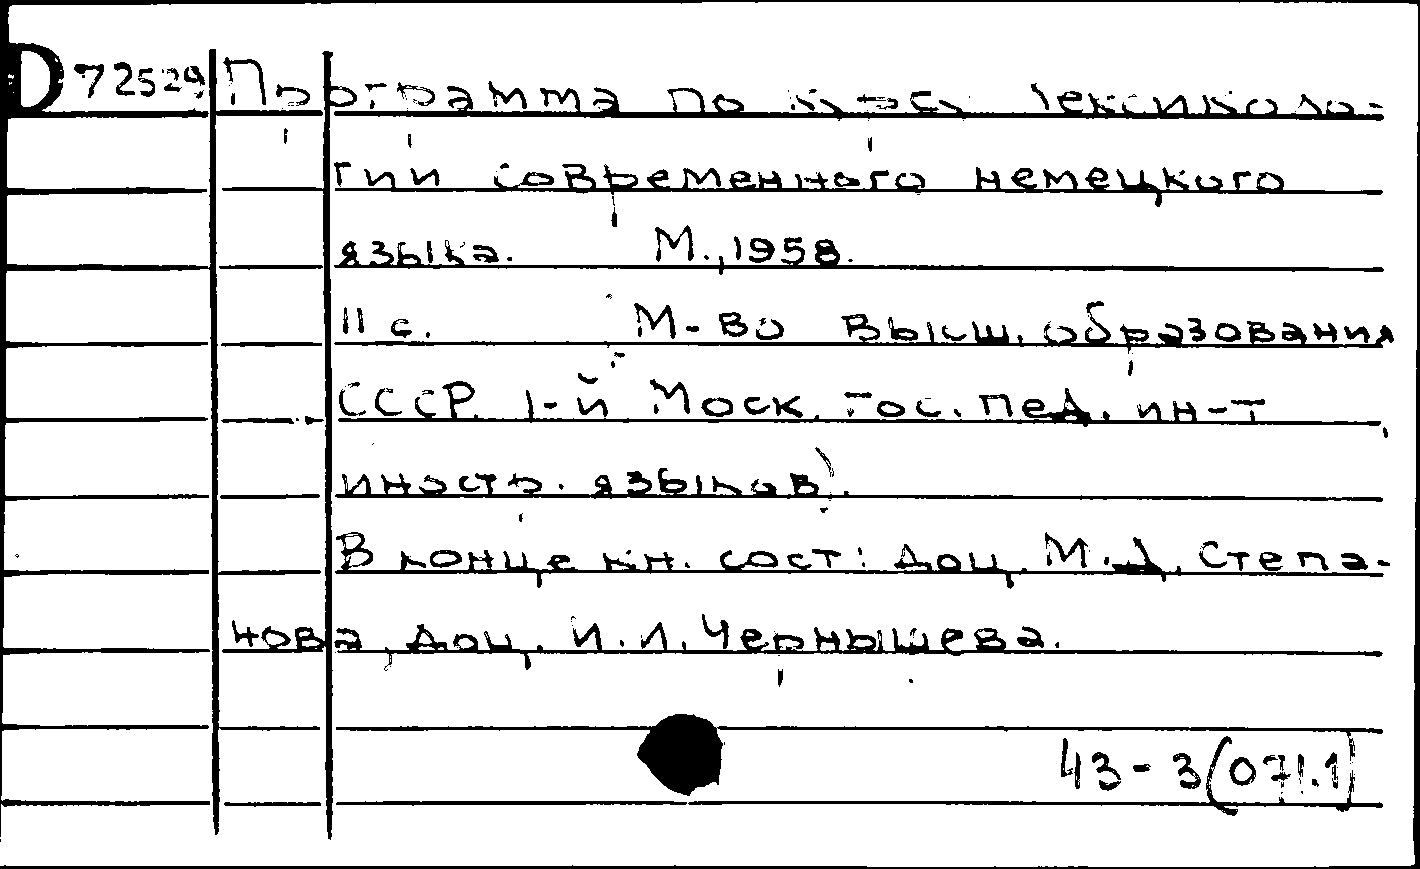 D 72529 Программа по курсу лексиколо-
гии современного немецкого
языка. М., 1958.
11 с. М-во высш. образования
СССР. 1-й Моск. гос. пед. ин-т
иностр. языков).
В конце кн. сост: доц. М.Д. Степа-
нова, доц. И.И. Чернышева.
43-3(071.1)